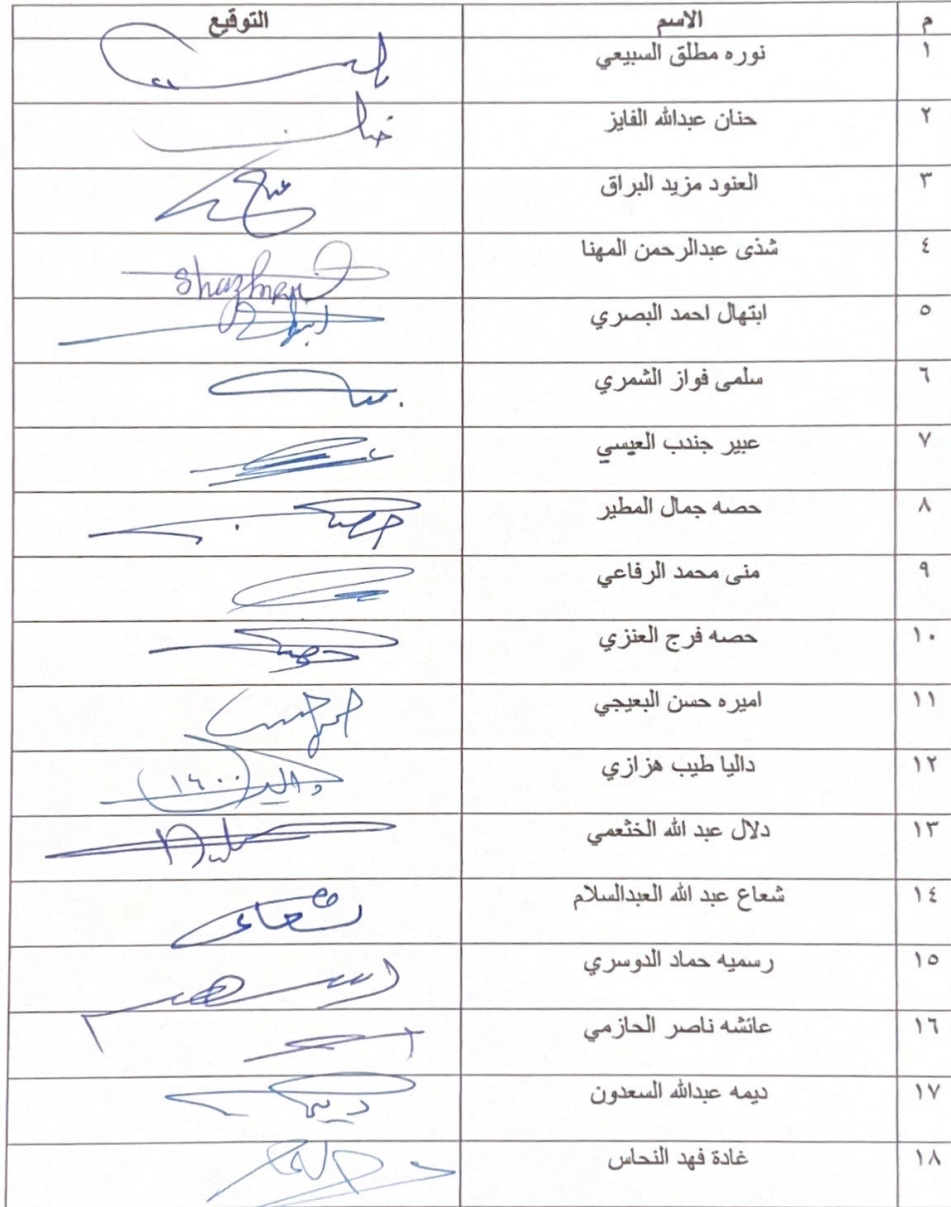 م الاسم التوقيع
١ نوره مطلق السبيعي
٢ حنان عبدالله الفايز حنان
٣ العنود مزيد البراق
٤ شذى عبدالرحمن المهنا
٥ ابتهال احمد البصري
٦ سلمى فواز الشمري
٧ عبير جندب العيسي
٨ حصه جمال المطير حصه
٩ منى محمد الرفاعي
١٠ حصه فرج العنزي حصه
١١ اميره حسن البعيجي
١٢ داليا طيب هزازي
١٣ دلال عبد الله الخثعمي
١٤ شعاع عبد الله العبدالسلام شعاع
١٥ رسميه حماد الدوسري
١٦ عائشه ناصر الحازمي
١٧ ديمه عبدالله السعدون ديمه
١٨ غادة فهد النحاس